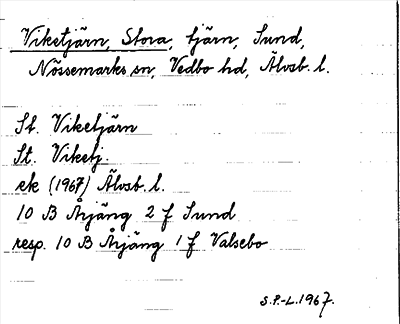 Viketjärn, Stora, tjärn, Sund,
Nössemarks sn, Vedbo hd, Älvsb. l.
St. Viketjärn
St. Viketj.
ek (1967) Älvsb. l.
10 B Årjäng 2 f Sund
resp. 10 B Årjäng 1 f Valsebo
S.P.-L. 1967.